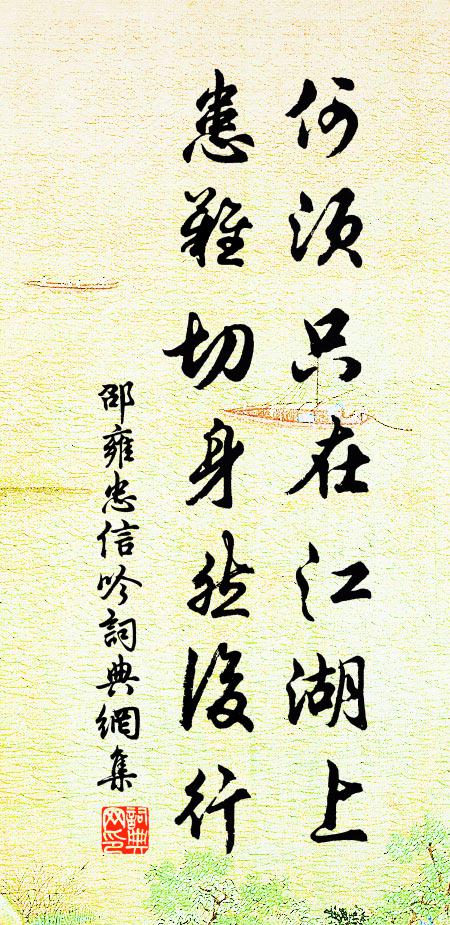 何須只在江湖上
患難切身然後行
邵雍忠信吟詞典網集
詞典網印